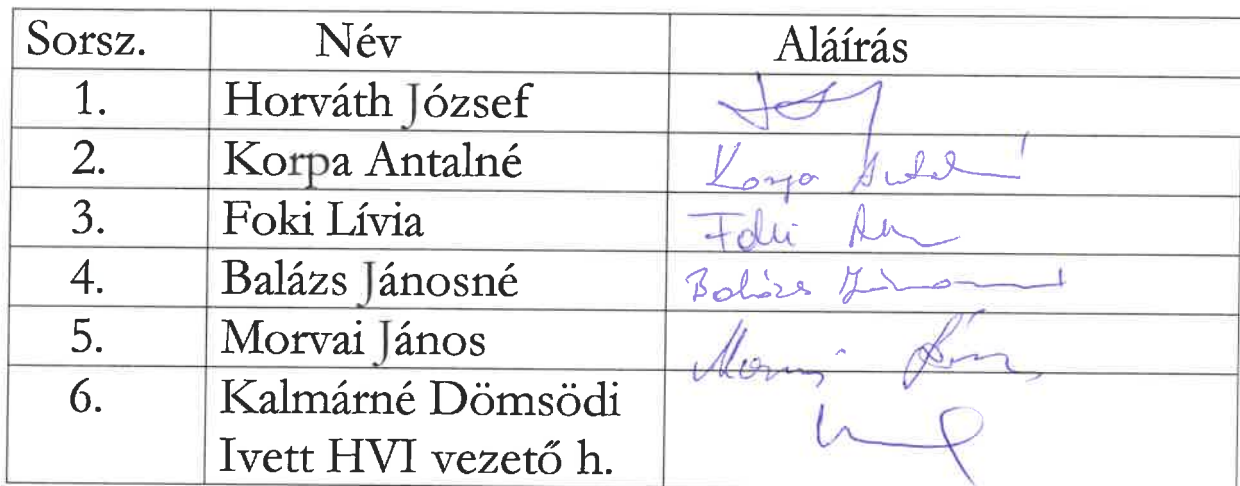 Sorsz. Név Aláírás
1. Horváth József
2. Korpa Antalné Korpa Antalné
3. Foki Lívia Foki
4. Balázs Jánosné Balázs Jánosné
5. Morvai János Morvai János
6. Kalmárné Dömsödi
Ivett HVI vezető h.